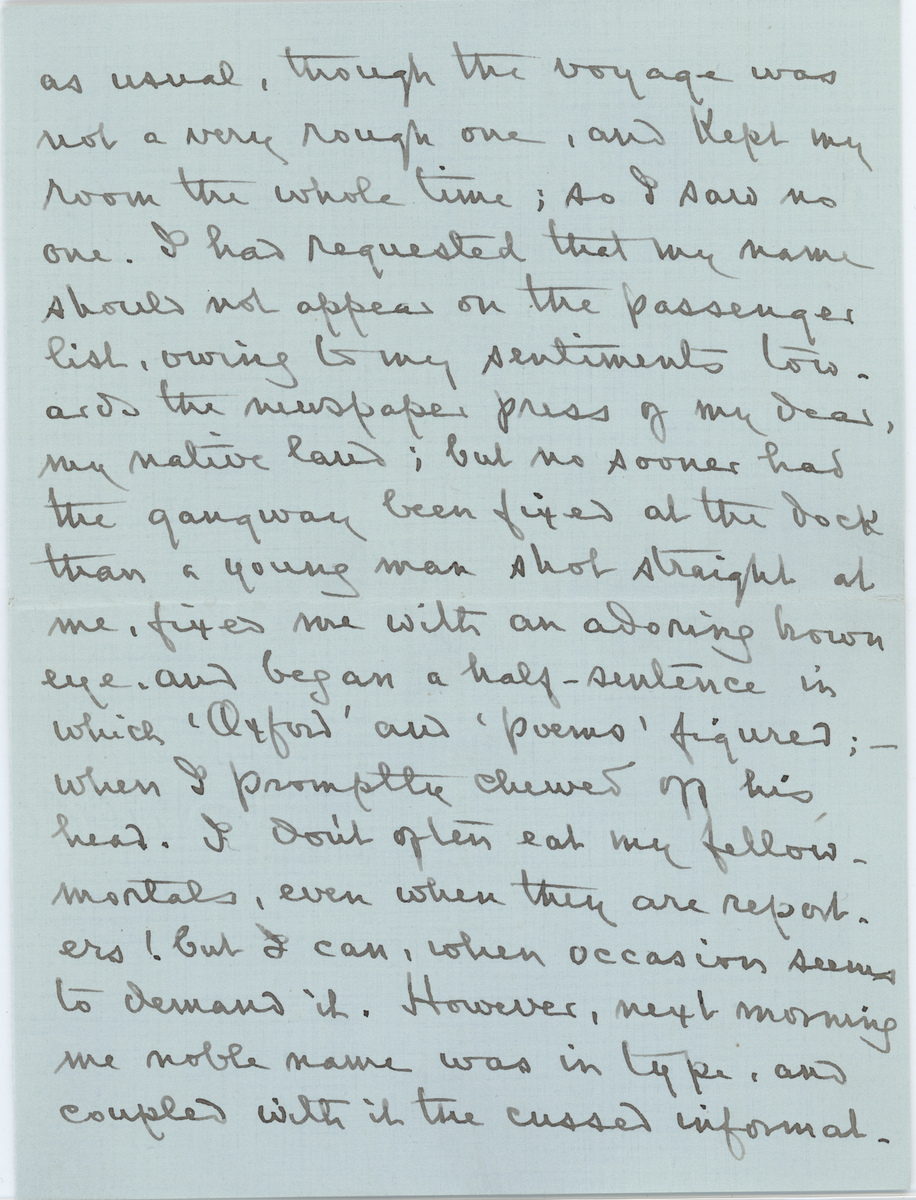 as usual, though the voyage was
not a very rough one, and kept my
room the whole time; so I saw no
one. I had requested that my name
should not appear on the passenger
list, owing to my sentiments tow-
ards the newspaper press of my dear,
my native land; but no sooner had
the gangway been fixed at the dock
than a young man shot straight at
me, fixed me with an adoring brown
eye, and began a half-sentence in
which 'Oxford' and 'poems' figured;—
when I promptly chewed off his
head. I don't often eat my fellow-
mortals, even when they are report-
ers! but I can, when occasion seems
to demand it. However, next morning
me noble name was in type, and
coupled with it the cussed informat-